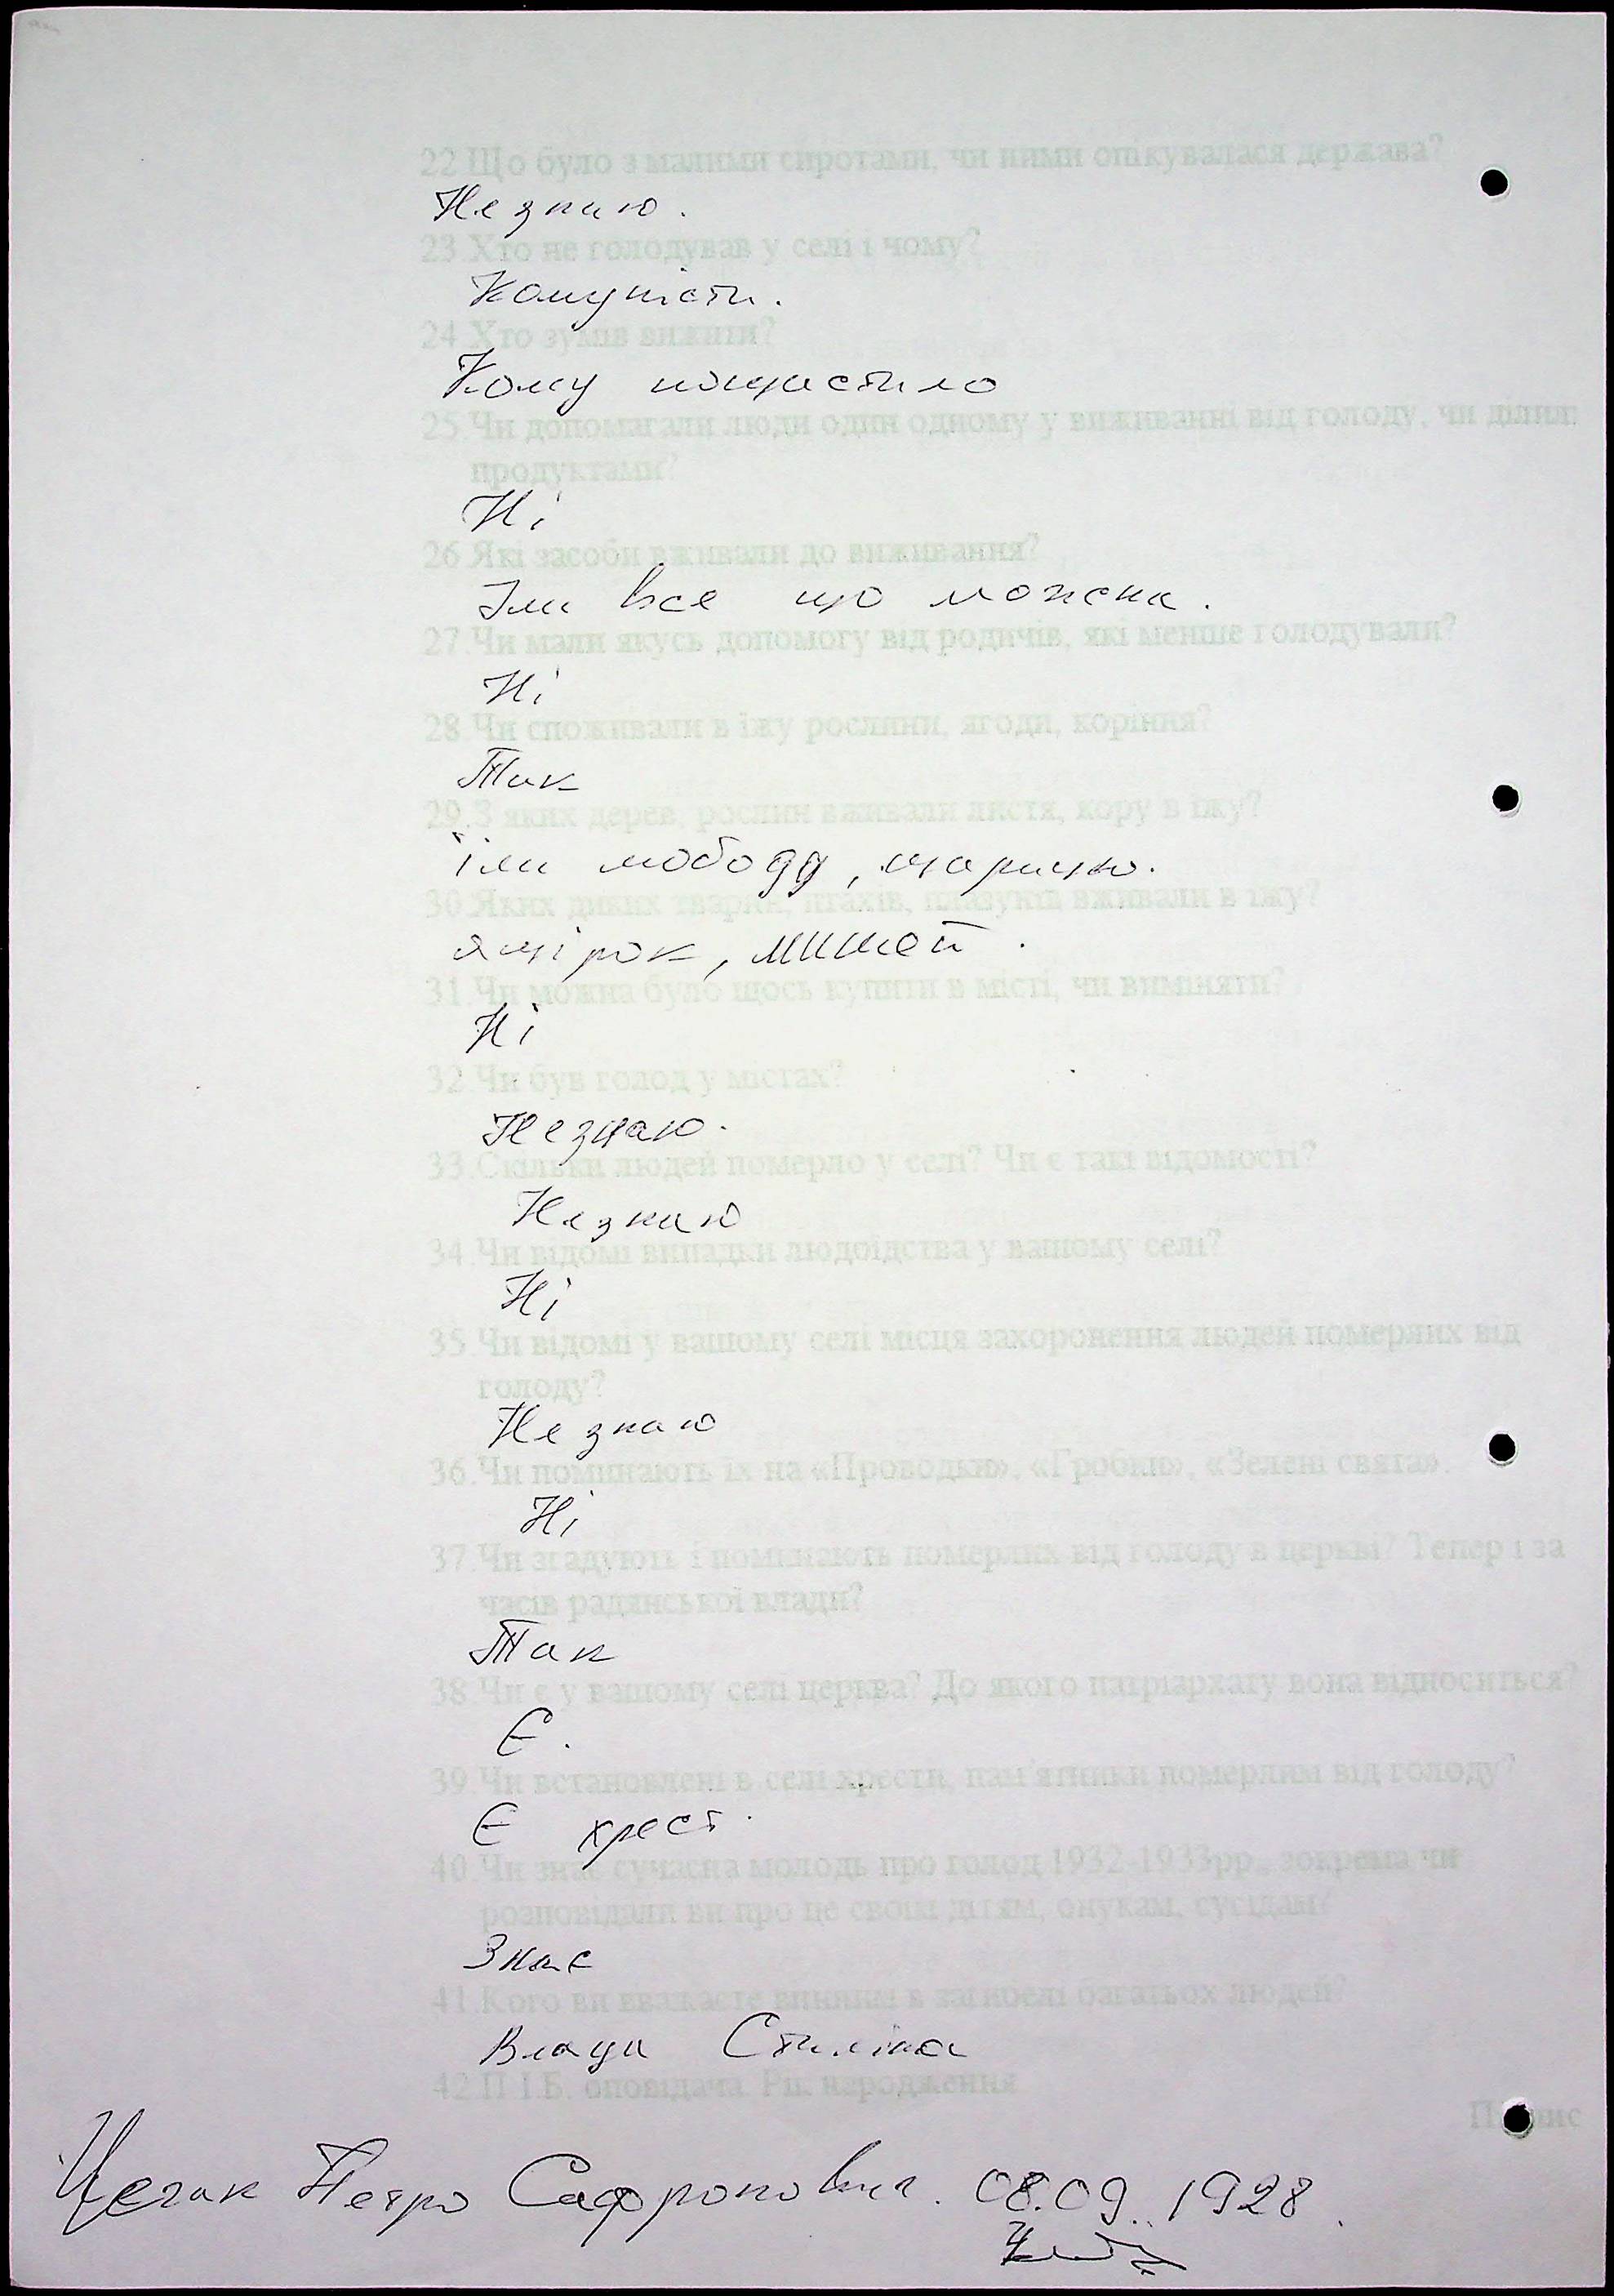 22.Що було з малими сиротами, чи ними опікувалася держава?
Не знаю.
23.Хто не голодував у селі і чому?
Комуністи.
24.Хто зумів вижити?
Кому пощастило
25.Чи допомагали люди один одному у виживанні від голоду, чи ділил
продуктами?
Ні
26.Які засоби вживали до виживання?
Їли все що можена.
27.Чи мали якусь допомогу від родичів, які менше голодували?
Ні
28.Чи споживали в їжу рослини, ягоди, коріння?
Так
29.З яких дерев, рослин вживали листя, кору в їжу?
їли лободу,
30.Яких диких тварин, птахів, плазунів вживали в їжу?
ящірок, мишей.
31.Чи можна було щось купити в місті, чи виміняти?
Ні
32.Чи був голод у містах?
Не знаю.
33.Скільки людей померло у селі? Чи є такі відомості?
Не знаю
34.Чи відомі випадки людоїдства у вашому селі?
Ні
35.Чи відомі у вашому селі місця захоронення людей померлих від
голоду?
Не знаю
36.Чи поминають їх на «Проводьи», «Гробки», «Зелені свята».
Ні
37.Чи згадують і поминають померлих від голоду в церкві? Тепер і за
часів радянської влади?
Так
38.Чи є у вашому селі церква? До якого патріархату вона відноситься?
Є.
39.Чи встановлені в селі хрести, пам'ятники померлим від голоду?
Є хрест.
40.Чи знає сучасна молодь про голод 1932-1933рр., зокрема чи
розповідали ви про це своїм дітям, онукам, сусідам?
Знає
41.Кого ви вважаєте винним в загибелі багатьох людей?
Влади Сталіна
42.П.І.Б. оповідача. Рік народження
Підпис
Петро Сафронович. 08.09.1928.